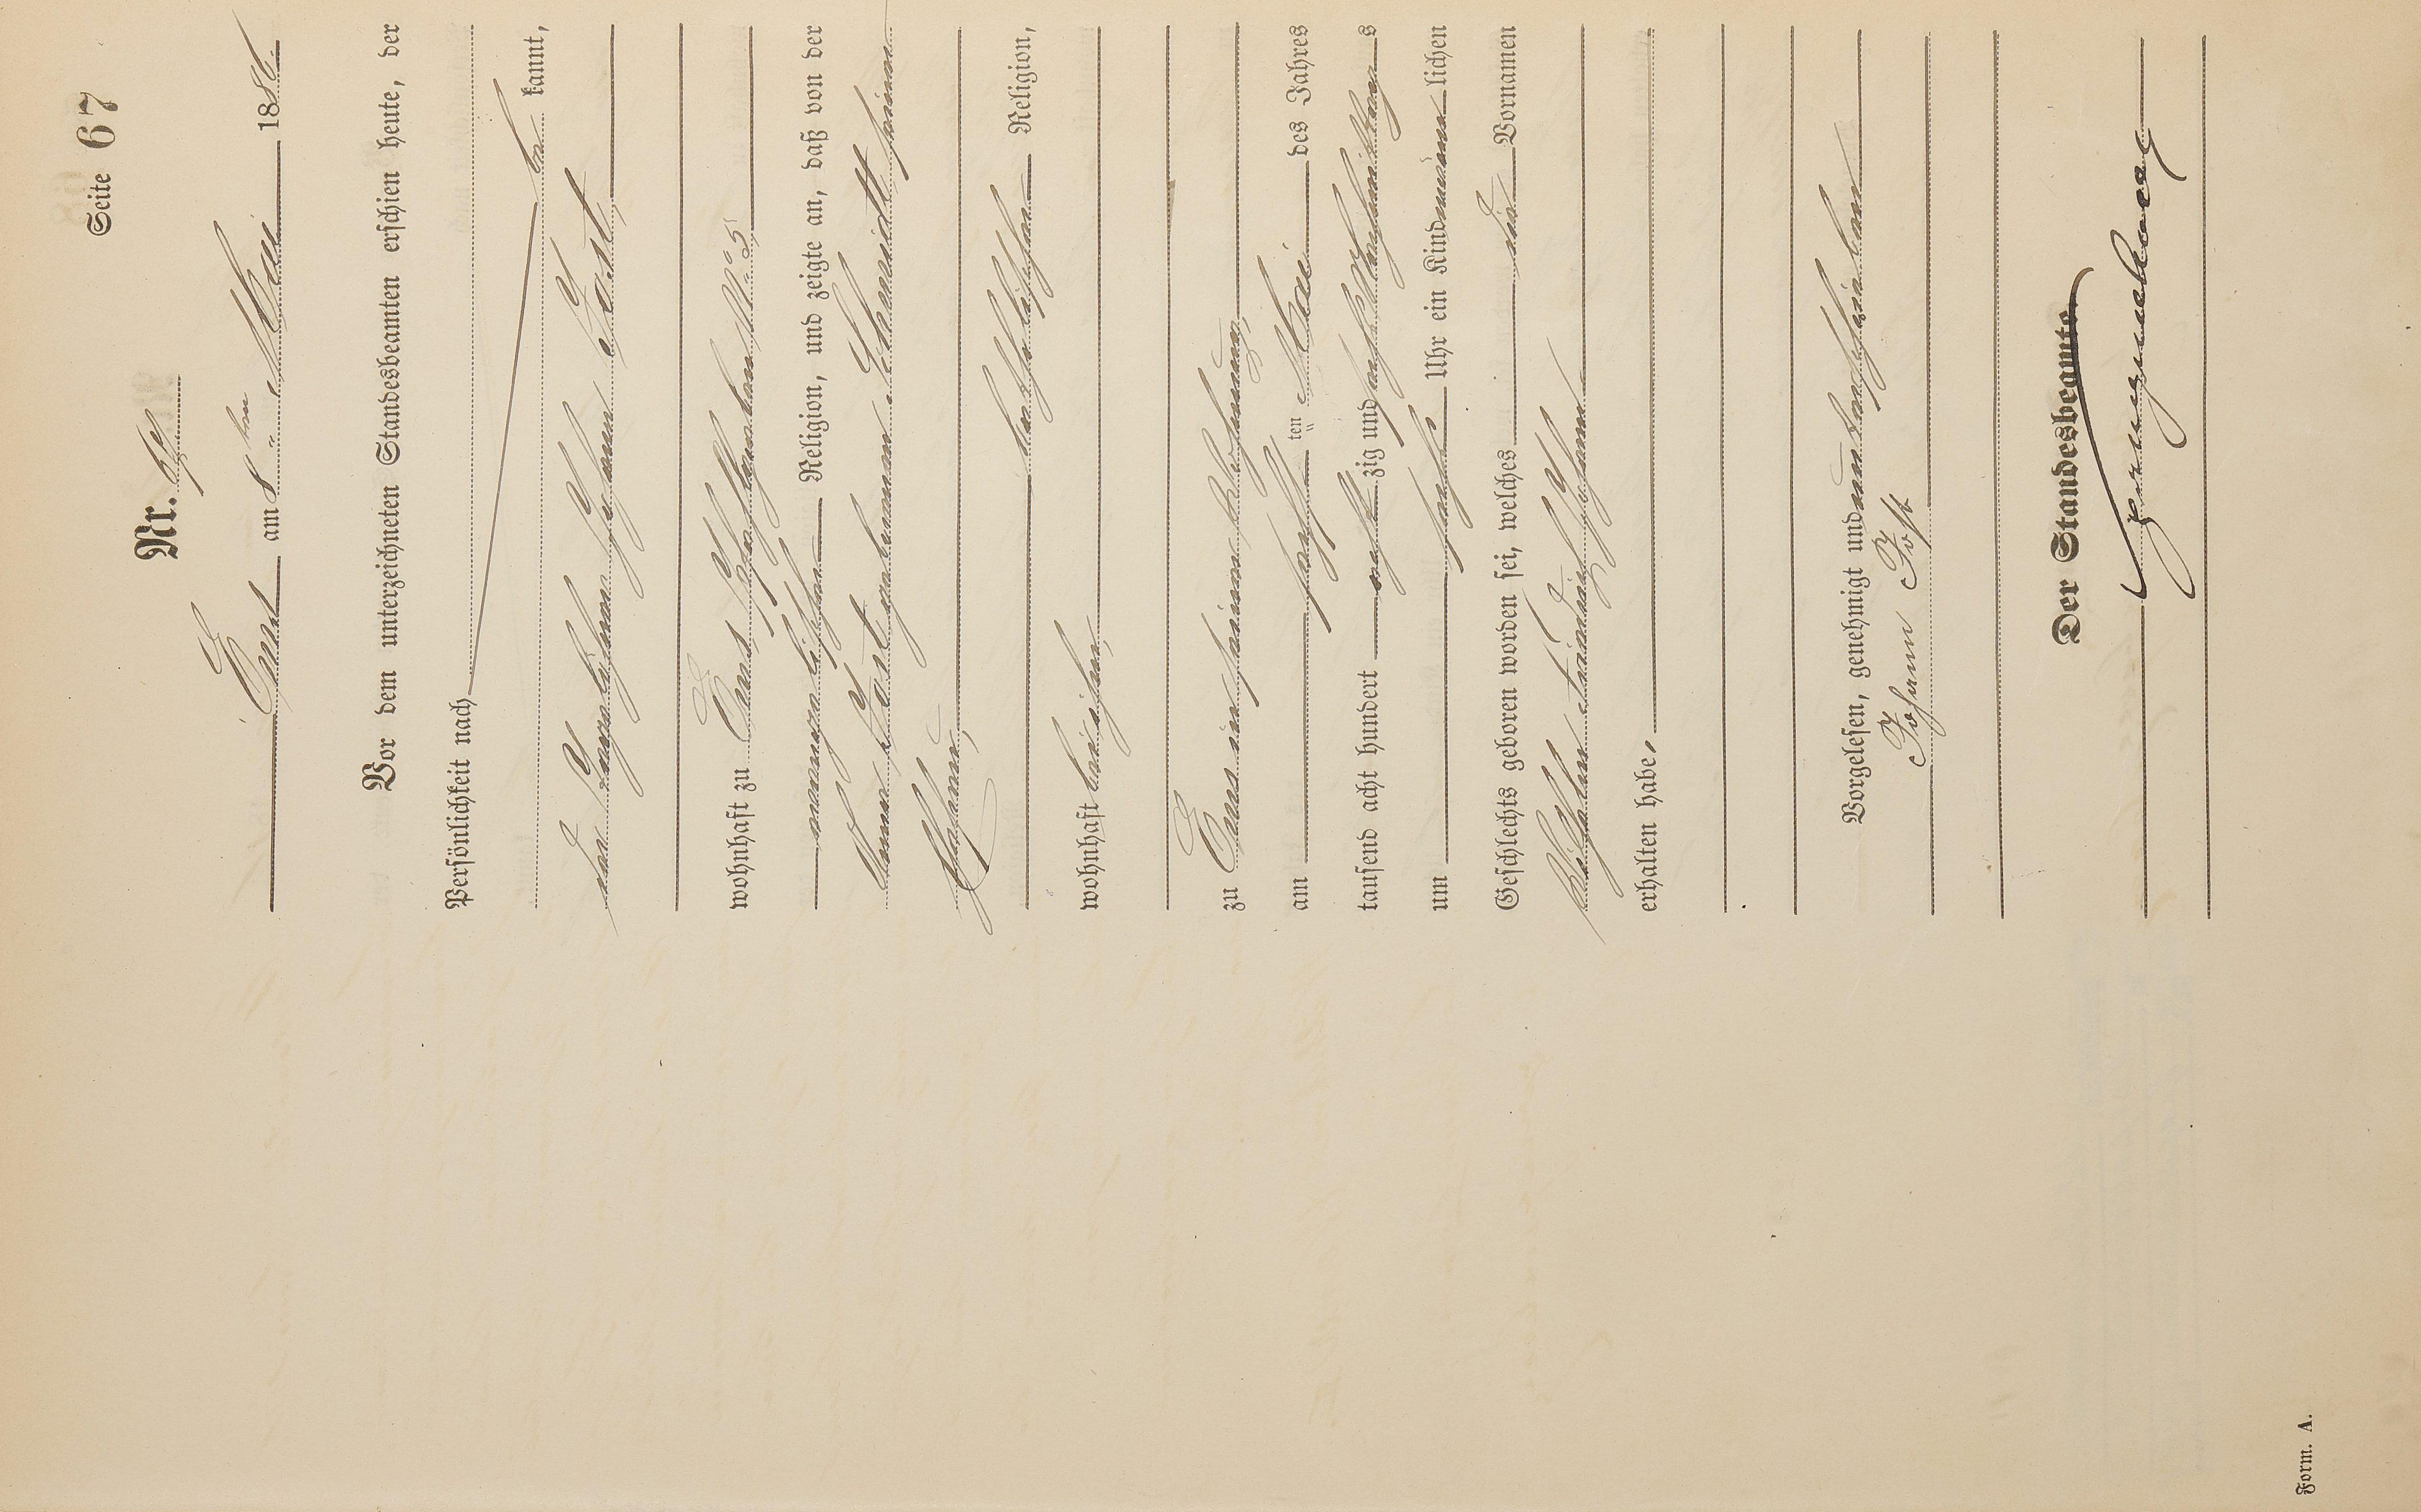 Seite 67
Nr. 67.
Ems am 8ten Mai 1886
Vor dem unterzeichneten Standesbeamten erschien heute, der
Persönlichkeit nach
be kannt,
der Taglöhner Johann Jost,
wohnhaft zu Ems, No 5,
evangelischer Religion, und zeigte an, daß von der
Anna Jost geborenen Schmidt seiner
Ehefrau,
katholischer Religion,
wohnhaft bei ihm,
zu Ems in seiner Wohnung,
am fünften Mai des Jahres
tausend acht hundert achtzig und sechs Nachmittags
um sechs Uhr ein Kind männlichen
Geschlechts geboren worden sei, welches die Vornamen
Wilhelm Johann
erhalten habe,
Vorgelesen, genehmigt und unterschrieben
Johann Jost
Der Standesbeamte.
Form. A.